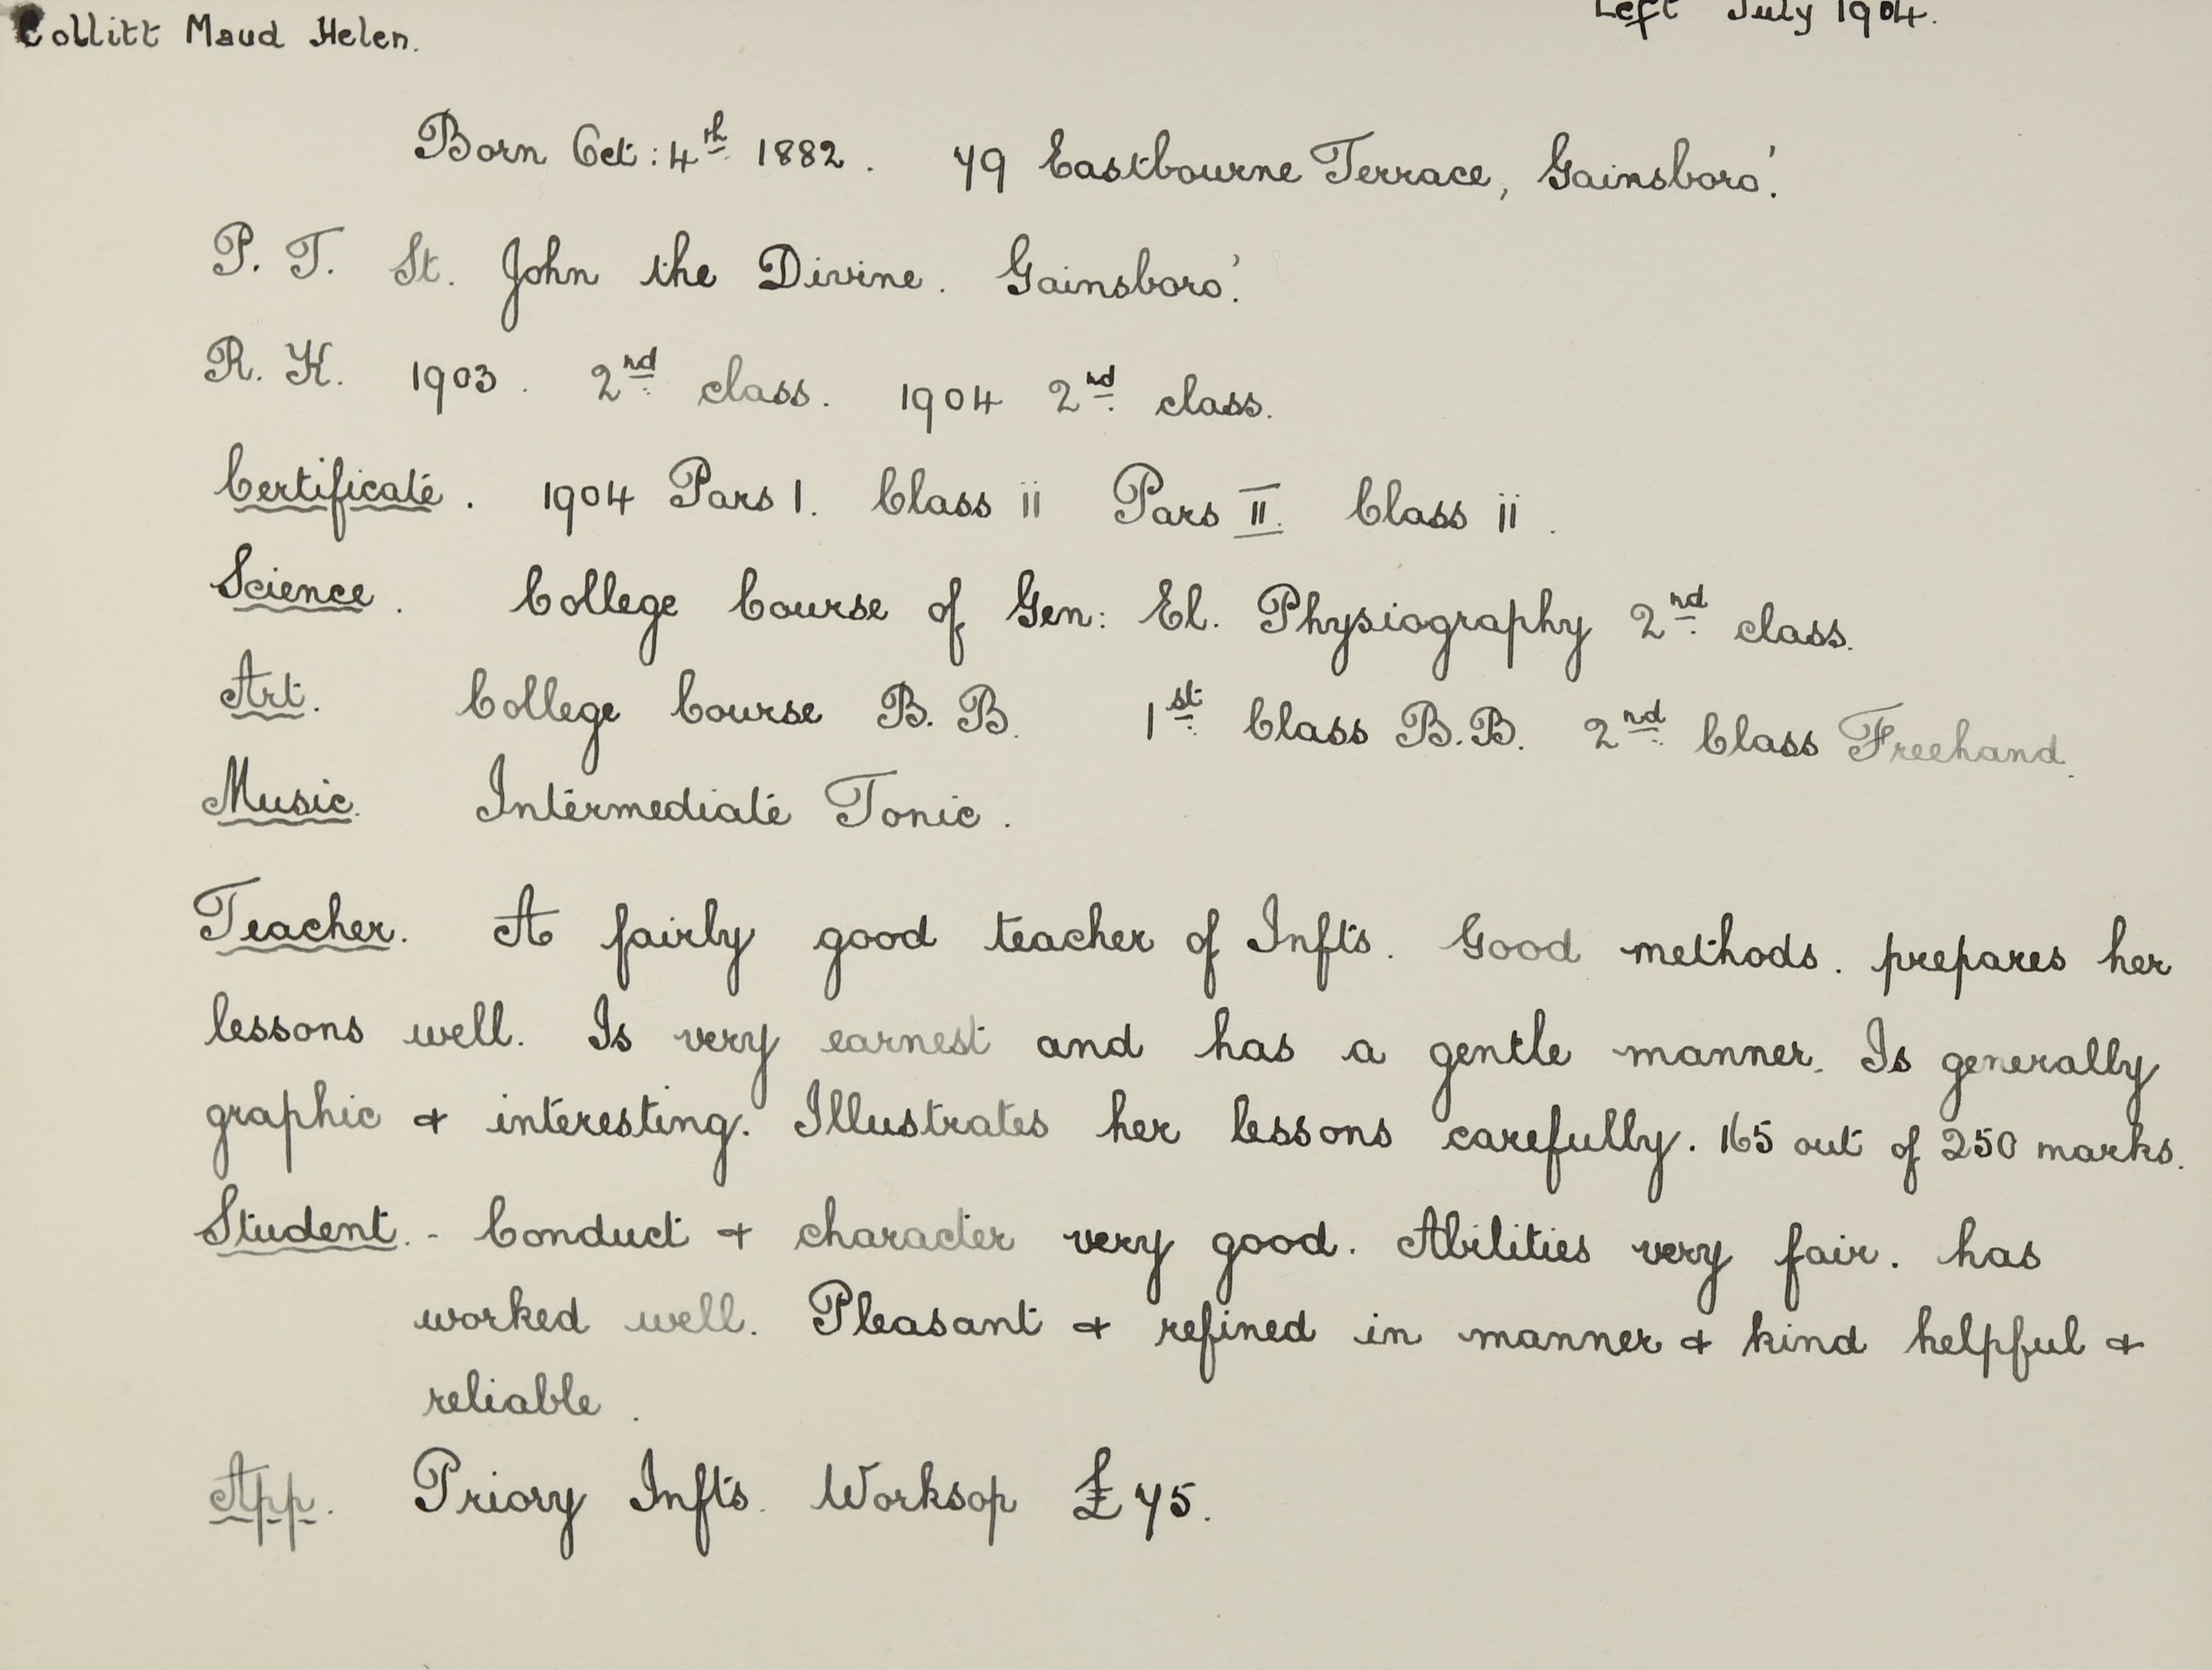 Collitt Maud Helen. Left July 1904.
Born Oct: 4th 1882. 79 Eastbourne Terrace, Gainsboro'.
P. T. St. John the Divine. Gainsboro'.
R. K. 1903. 2nd class. 1904 2nd class.
Certificate. 1904 Pars I. Class ii Pars II. Class ii.
Science. College Course of Gen: El. Physiography 2nd class.
Art. College Course B. B. 1st Class B.B. 2nd Class Freehand.
Music. Intermediate Tonic.
Teacher. A fairly good teacher of Infts. Good methods. prepares her
lessons well. Is very earnest and has a gentle manner. Is generally
graphic & interesting. Illustrates her lessons carefully. 165 out of 250 marks.
Student. - Conduct & character very good. Abilities very fair. has
worked well. Pleasant & refined in manner & kind helpful &
reliable.
App. Priory Infts. Worksop £75.